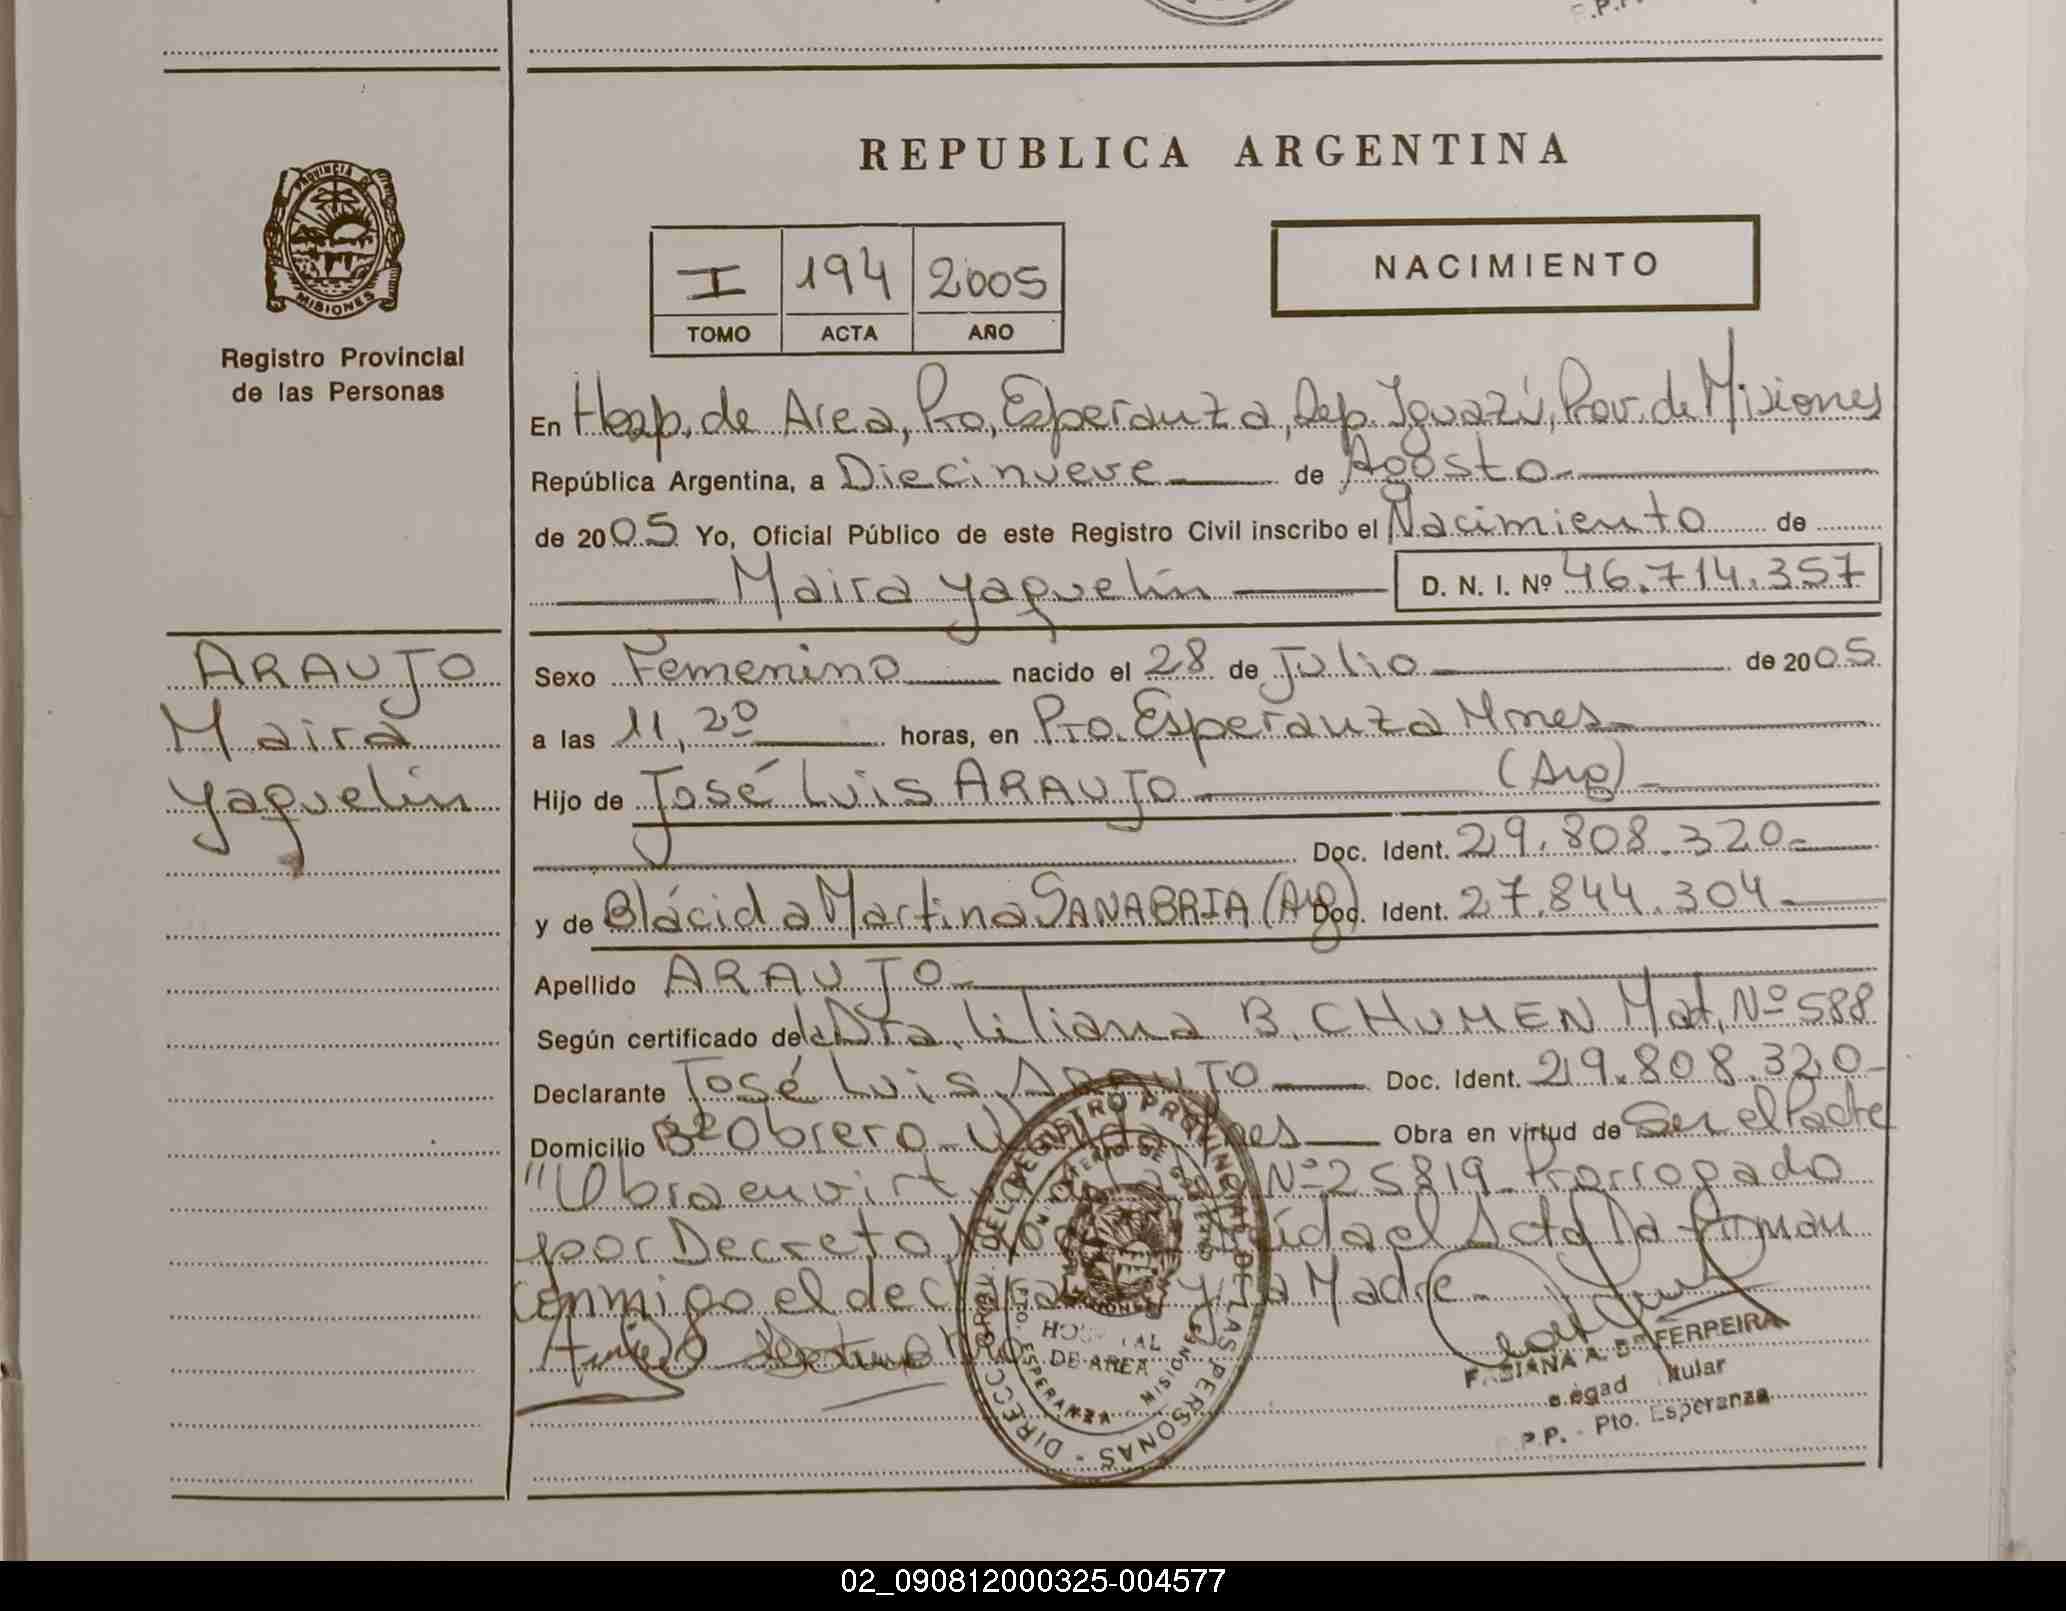 REPUBLICA ARGENTINA
PROVINCIA DE
MISIONES
Registro Provincial
de las Personas
I 194 2005
TOMO ACTA AÑO
NACIMIENTO
En Hosp. de Area, Pto, Esperanza, Dep. Iguazú, Prov. de Misiones
República Argentina, a Diecinueve de Agosto
de 2005 Yo, Oficial Público de este Registro Civil inscribo el Nacimiento de
Maira Yaquelin D. N. I. Nº 46.714.357
ARAUJO
Maira
Yaquelin
Sexo Femenino nacido el 28 de Julio de 2005
a las 11,20 horas, en Pto. Esperanza Mnes
Hijo de José Luis ARAUJO (Arg)
Doc. Ident. 29.808.320
y de Blácida Martina SANABRIA (Arg) Doc. Ident. 27.844.304
Apellido ARAUJO
Según certificado de la Dra. Liliana B. CHUMEN Mat. Nº 588
Declarante José Luis ARAUJO Doc. Ident. 29.808.320
Domicilio Bº Obrero Obra en virtud de Ser el Padre
"Obra en virtud Nº 25819 Prorrogado
por Decreto el Acta la firman
conmigo el y la Madre
DIRECC. DEL REGISTRO PROVINCIAL DE LAS PERSONAS
MINISTERIO DE GOBIERNO
HOSPITAL
DE AREA
PTO. ESPERANZA MISIONES
FABIANA A. DE FERREIRA
Titular
Pto. Esperanza
02_090812000325-004577